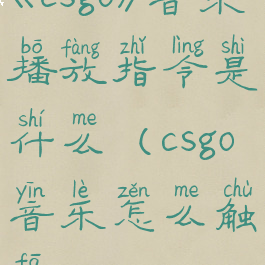 《csgo》音乐
bō fàng zhǐ lìng shì
播放指令是
shí me
什么（csgo
yīn lè zěn me chù
音乐怎么触
fā